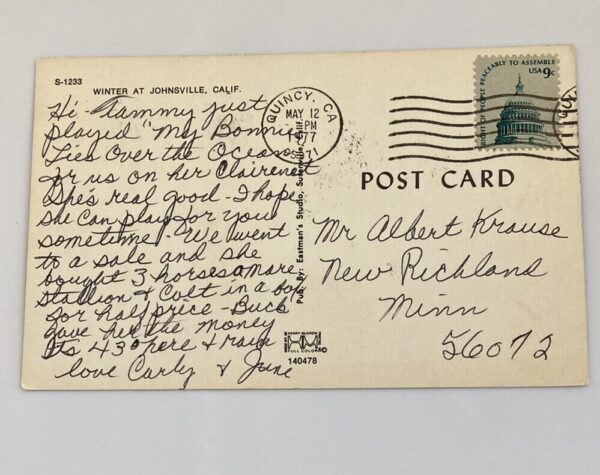 S-1233
WINTER AT JOHNSVILLE, CALIF.
Hi - Tammy just
played "My Bonnie
Lies Over the Ocean
for us on her Clairenet
She's real good - I hope
she can play for you
sometime. We went
to a sale and she
bought 3 horses a mare
stallion & Colt in a box
for half price - Buck
gave her the money
Its 43° here & rain
love Curly & June
QUINCY, CA
MAY 12
PM
1977
95971
RIGHT OF PEOPLE PEACEABLY TO ASSEMBLE
USA 9c
POST CARD
Pub. By: Eastman's Studio, Susanville, Calif.
Mr Albert Krause
New Richland
Minn
56072
HENRY McGREW
HM
FULL COLOR
140478